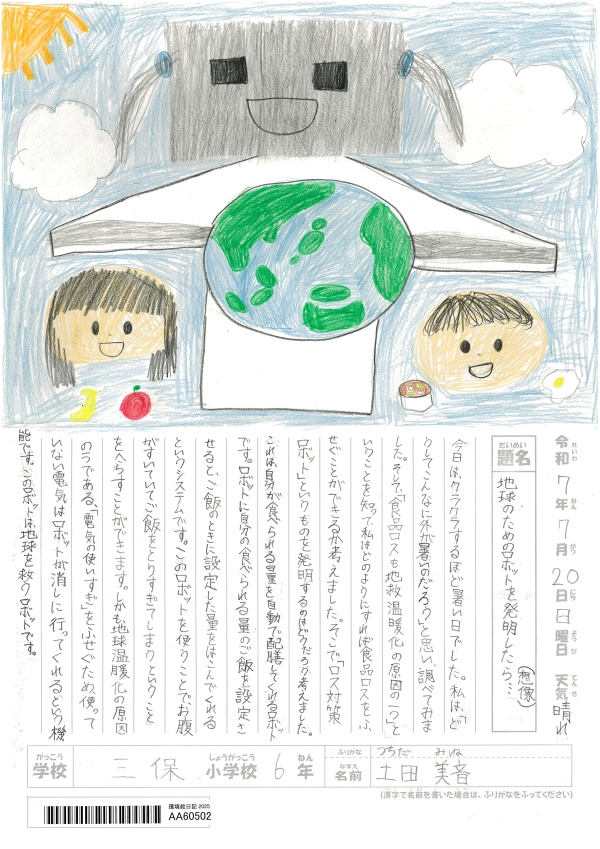 令和7年7月20日日曜日 天気晴れ
れいわ ねん がつ にち ようび てんき
だいめい
題名 地球のためのロボットを発明したら…(想像)
今日は、クラクラするほど暑い日でした。私は、「ど
うしてこんなに外が暑いのだろう」と思い、調べてみま
した。そして、「食品ロスも地救温暖化の原因の一つ」と
いうことを知って、私はどのようにすれば食品ロスをふ
せぐことができるか考えました。そこで「ロス対策
ロボット」というものを発明するのはどうだろう考えました。
これは、自分が食べられる量を自動で配膳してくれるロボット
です。ロボットに自分の食べられる量のご飯を設定さ
せると、ご飯のときに設定した量をはこんでくれる
というシステムです。このロボットを使うことで、お腹
がすいていてご飯をとりすぎてしまうということ
をへらすことができます。しかも地球温暖化の原因
の1つである、「電気の使いすぎ」をふせぐため、使って
いない電気はロボットが消しに行ってくれるという機
能です。このロボットは地球を救うロボットです。
がっこう しょうがっこう ねん
学校 三保 小学校 6年
ふりがな つちだ みね
なまえ
名前 土田 美音
(漢字で名前を書いた場合は、ふりがなをふってください)
環境絵日記 2025
AA60502